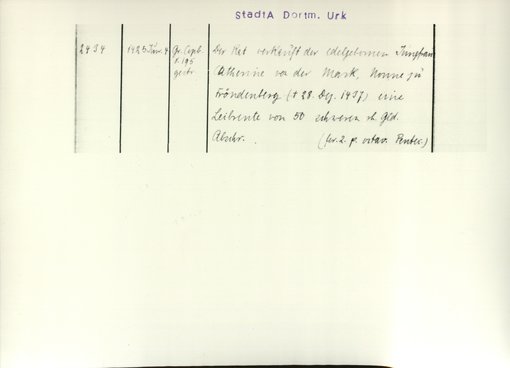 StadtA Dortm. Urk
2434 1423 Jun. 4 Gr. Copb. Der Rat verkauft der edelgebornen Jungfrau
S. 195 Catherine von der Mark, Nonne zu
gestr. Fröndenberg († 28. Dez. 1437) eine
Leibrente von 50 schweren rh. Gld.
Abschr. (fer. 2. p. octav. Pentec.)